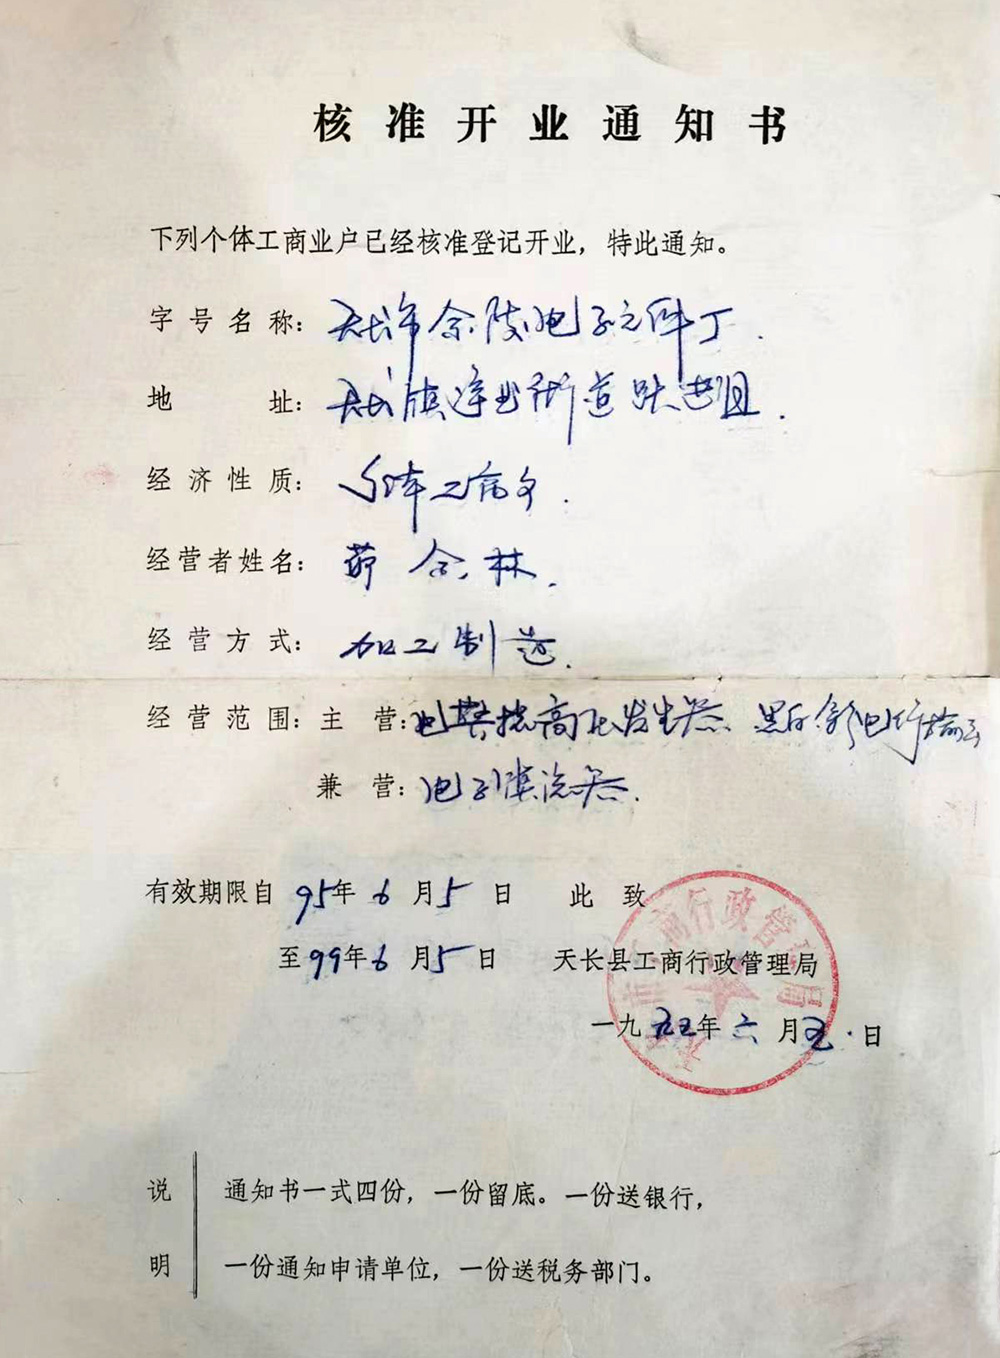 核准开业通知书
下列个体工商业户已经核准登记开业，特此通知。
字号名称：天长市余陵电子元件厂.
地址：天长 街道跃进组.
经济性质：个体工商户.
经营者姓名：茆余林.
经营方式：加工制造.
经营范围：主营：高压发生器、黑白
兼营：电子 器.
有效期限自95年6月5日 此致
至99年6月5日 天长县工商行政管理局
一九九五年六月五日
说明 通知书一式四份，一份留底。一份送银行，
一份通知申请单位，一份送税务部门。